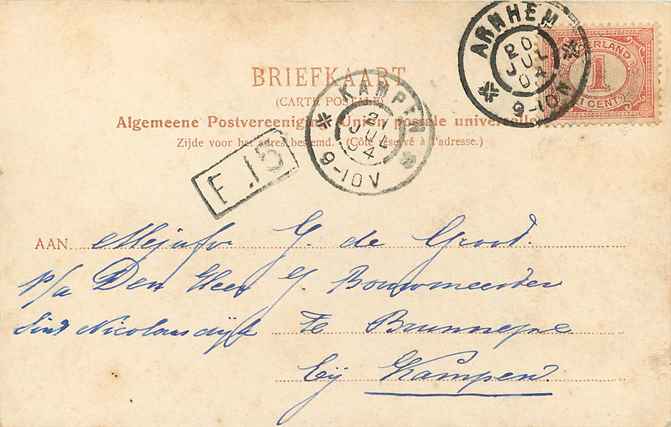 ARNHEM
20
JUL
04
9-10N
NEDERLAND
1
CENT
BRIEFKAART
(CARTE POSTALE)
KAMPEN
21
JUL
04
9-10V
Algemeene Postvereeniging. Union postale universelle
Zijde voor het adres bestemd. (Côté réservé à l'adresse.)
F 15
AAN Mejufvr. J. de Groot.
p/a Den Heer J. Bouwmeester
Sint Nicolaasdijk Te Brunnepe
bij Kampen.